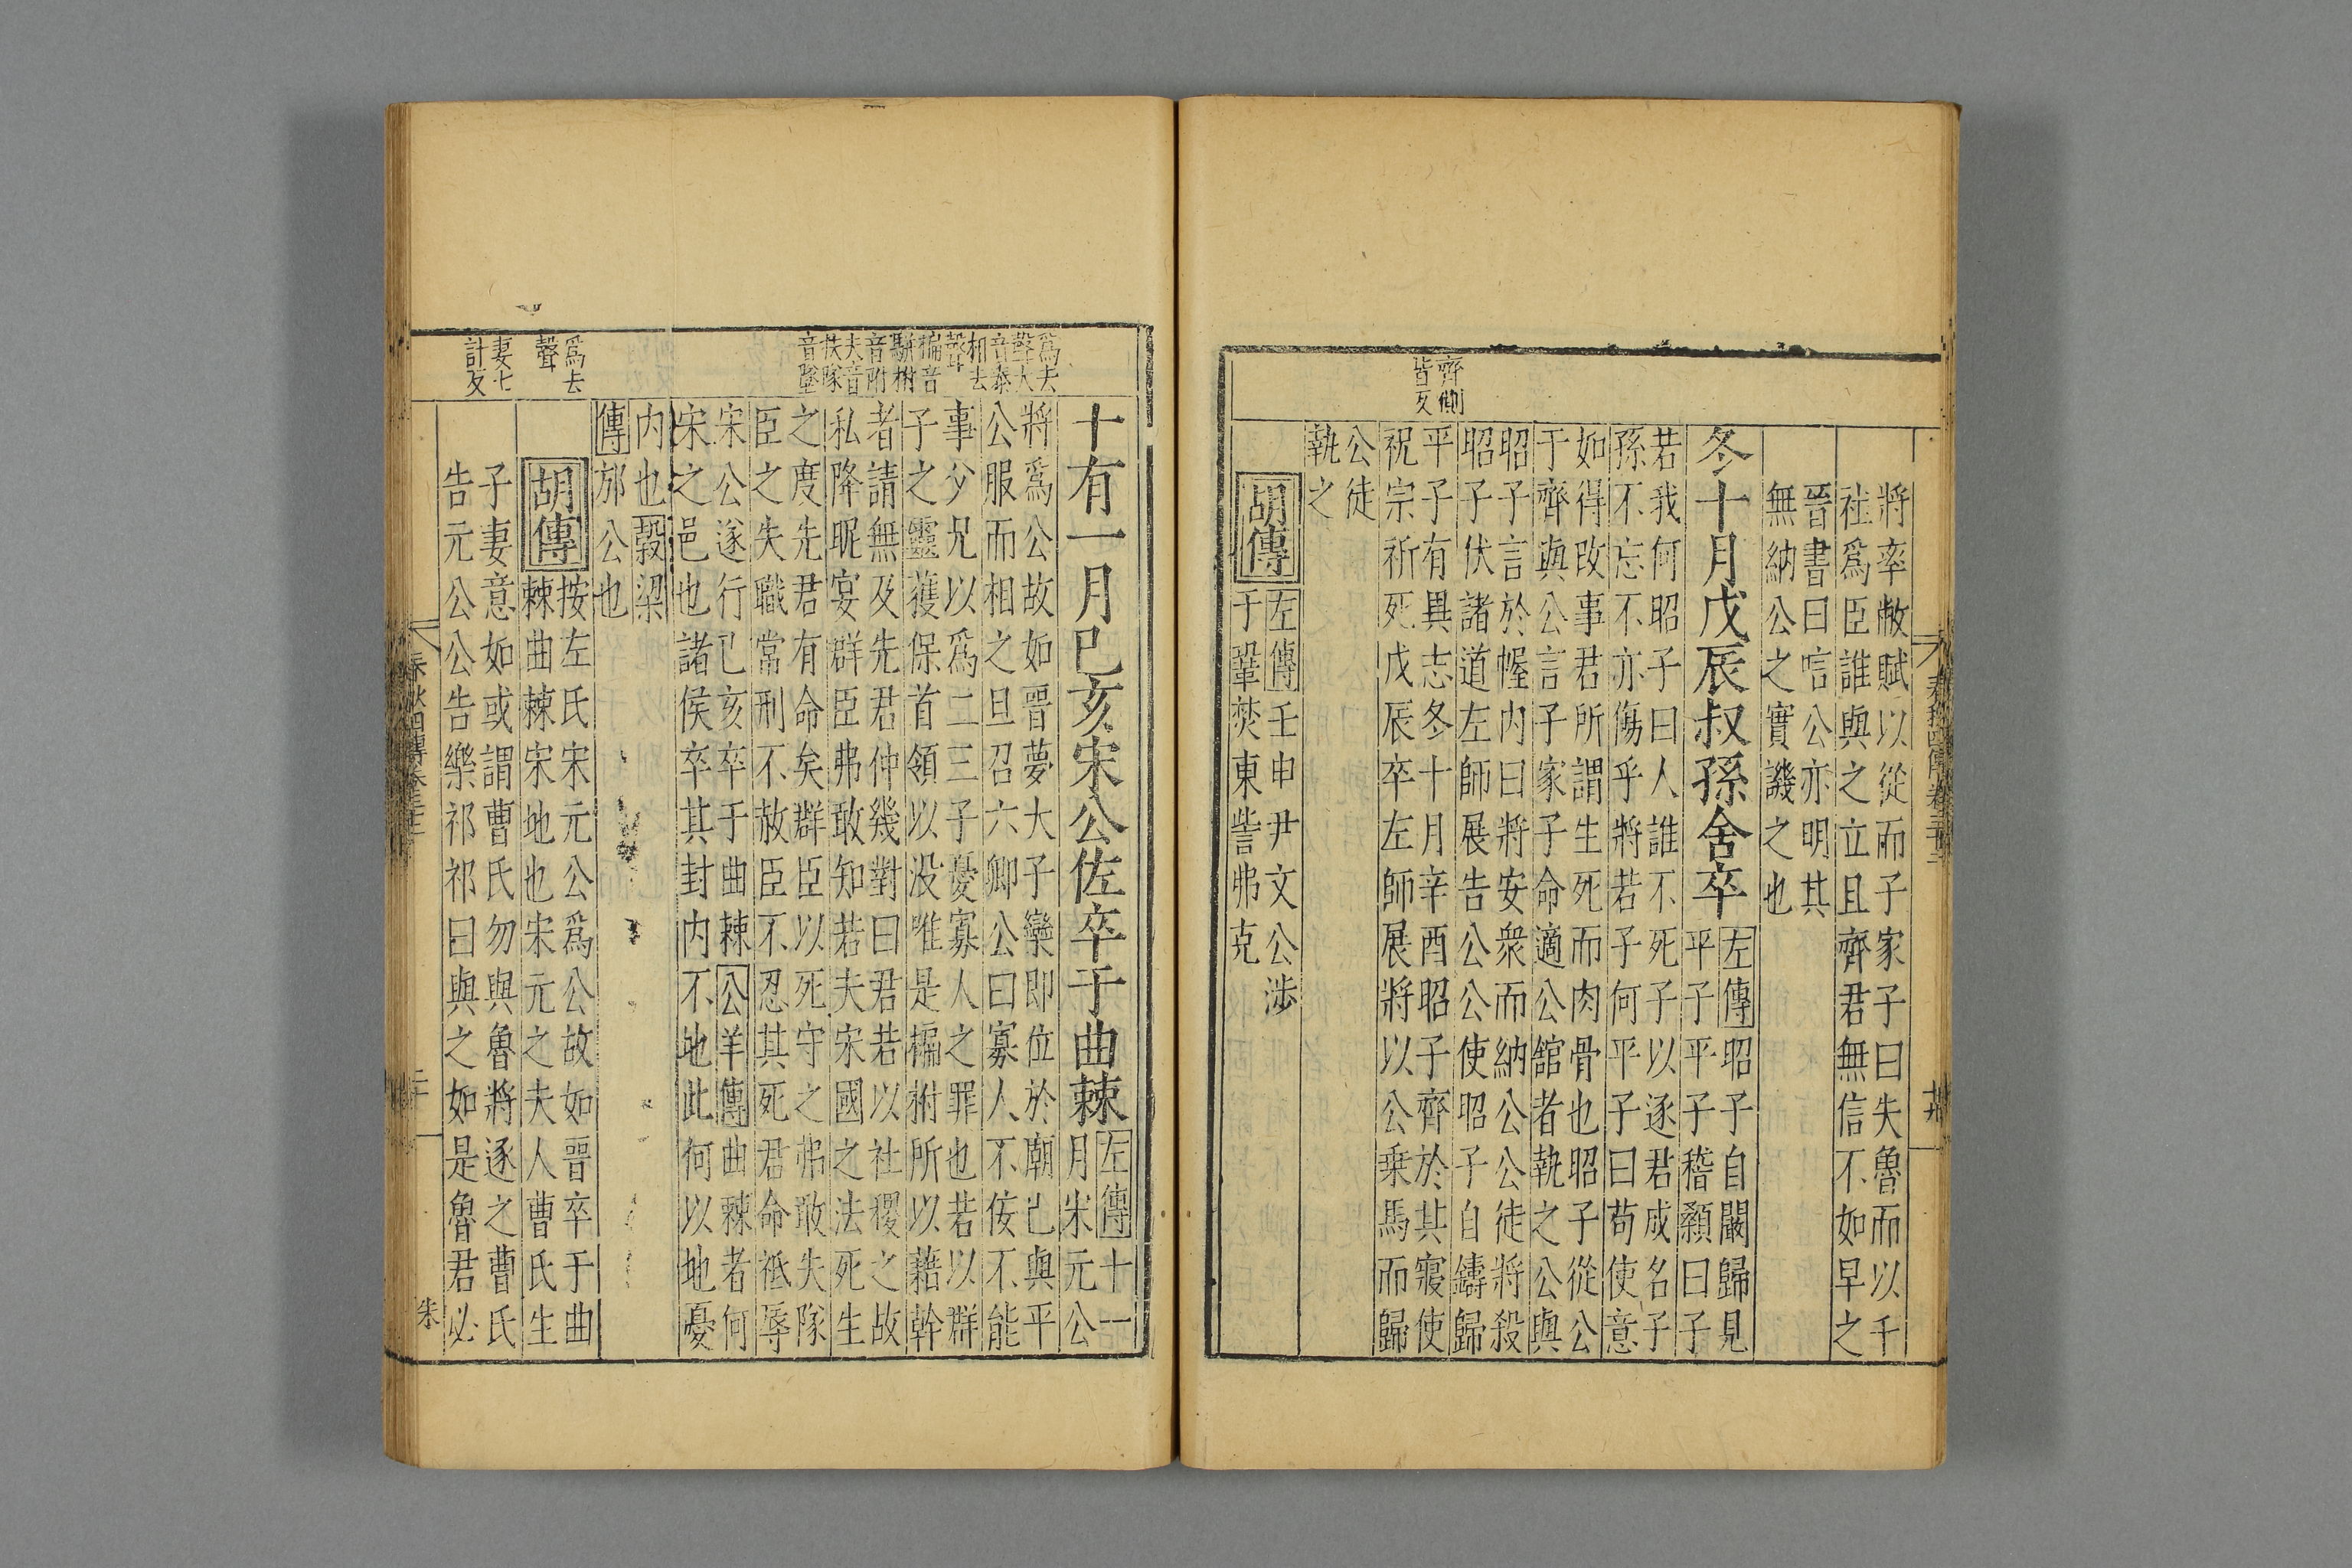 將率敝賦以從而子家子曰失魯而以千
社爲臣誰與之立且齊君無信不如早之
晉書曰唁公亦明其
無納公之實譏之也
冬十月戊辰叔孫舍卒
左傳昭子自闞歸見
平子平子稽顙曰子
若我何昭子曰人誰不死子以逐君成名子
孫不忘不亦傷乎將若子何平子曰苟使意
如得改事君所謂生死而肉骨也昭子從公
于齊與公言子家子命適公館者執之公與
昭子言於幄内曰將安衆而納公公徒將殺
昭子伏諸道左師展告公公使昭子自鑄歸
平子有異志冬十月辛酉昭子齊於其寢使
祝宗祈死戊辰卒左師展將以公乗馬而歸
公徒
執之
胡傳
左傳壬申尹文公涉
于鞏焚東訾弗克
齊側
皆反
十有一月己亥宋公佐卒于曲棘
左傳十一
月宋元公
將爲公故如晉夢大子欒即位於廟己與平
公服而相之旦召六卿公曰寡人不佞不能
事父兄以爲二三子憂寡人之罪也若以群
子之靈獲保首領以没唯是楄柎所以藉幹
者請無及先君仲幾對曰君若以社稷之故
私降昵宴群臣弗敢知若夫宋國之法死生
之度先君有命矣群臣以死守之弗敢失隊
臣之失職常刑不赦臣不忍其死君命祗辱
宋公遂行己亥卒于曲棘公羊傳曲棘者何
宋之邑也諸侯卒其封内不地此何以地憂
内也穀梁
傳邡公也
胡傳
按左氏宋元公爲公故如晉卒于曲
棘曲棘宋地也宋元之夫人曹氏生
子妻意如或謂曹氏勿與魯將逐之曹氏
告元公公告樂祁祁曰與之如是魯君必
爲去
聲大
音泰
相去
聲
楄音
駢柎
音附
夫音
扶隊
音墜
爲去
聲
妻七
計反
朱